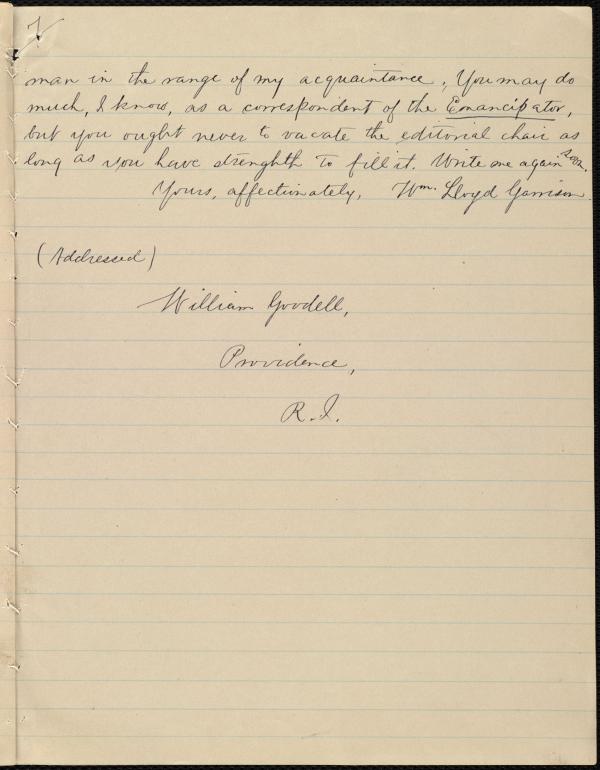 7
man in the range of my acquaintance. You may do
much, I know, as a correspondent of the Emancipator,
but you ought never to vacate the editorial chair as
long as you have strenghth to fill it. Write me again soon.
Yours, affectionately, Wm. Lloyd Garrison.
(Addressed)
William Goodell,
Providence,
R.I.